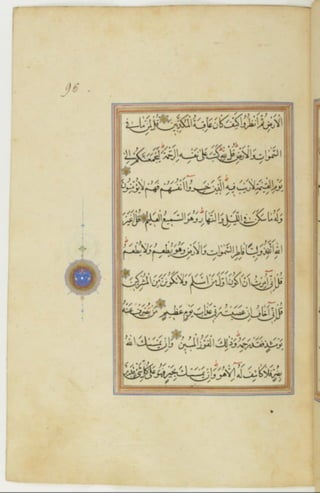 96
الارض ثم انظروا كيف كان عاقبة المكذبين قل لمن ما في
السموات والارض قل لله كتب على نفسه الرحمة ليجمعنكم الى
يوم القيمة لا ريب فيه الذين خسروا انفسهم فهم لا يؤمنون
وله ما سكن في الليل والنهار وهو السميع العليم قل اغير
الله اتخذ وليا فاطر السموات والارض وهو يطعم ولا يطعم
قل اني امرت ان اكون اول من اسلم ولا تكونن من المشركين
قل اني اخاف ان عصيت ربي عذاب يوم عظيم من يصرف عنه
يومئذ فقد رحمه وذلك الفوز المبين وان يمسسك الله
بضر فلا كاشف له الا هو وان يمسسك بخير فهو على كل شئ قدير